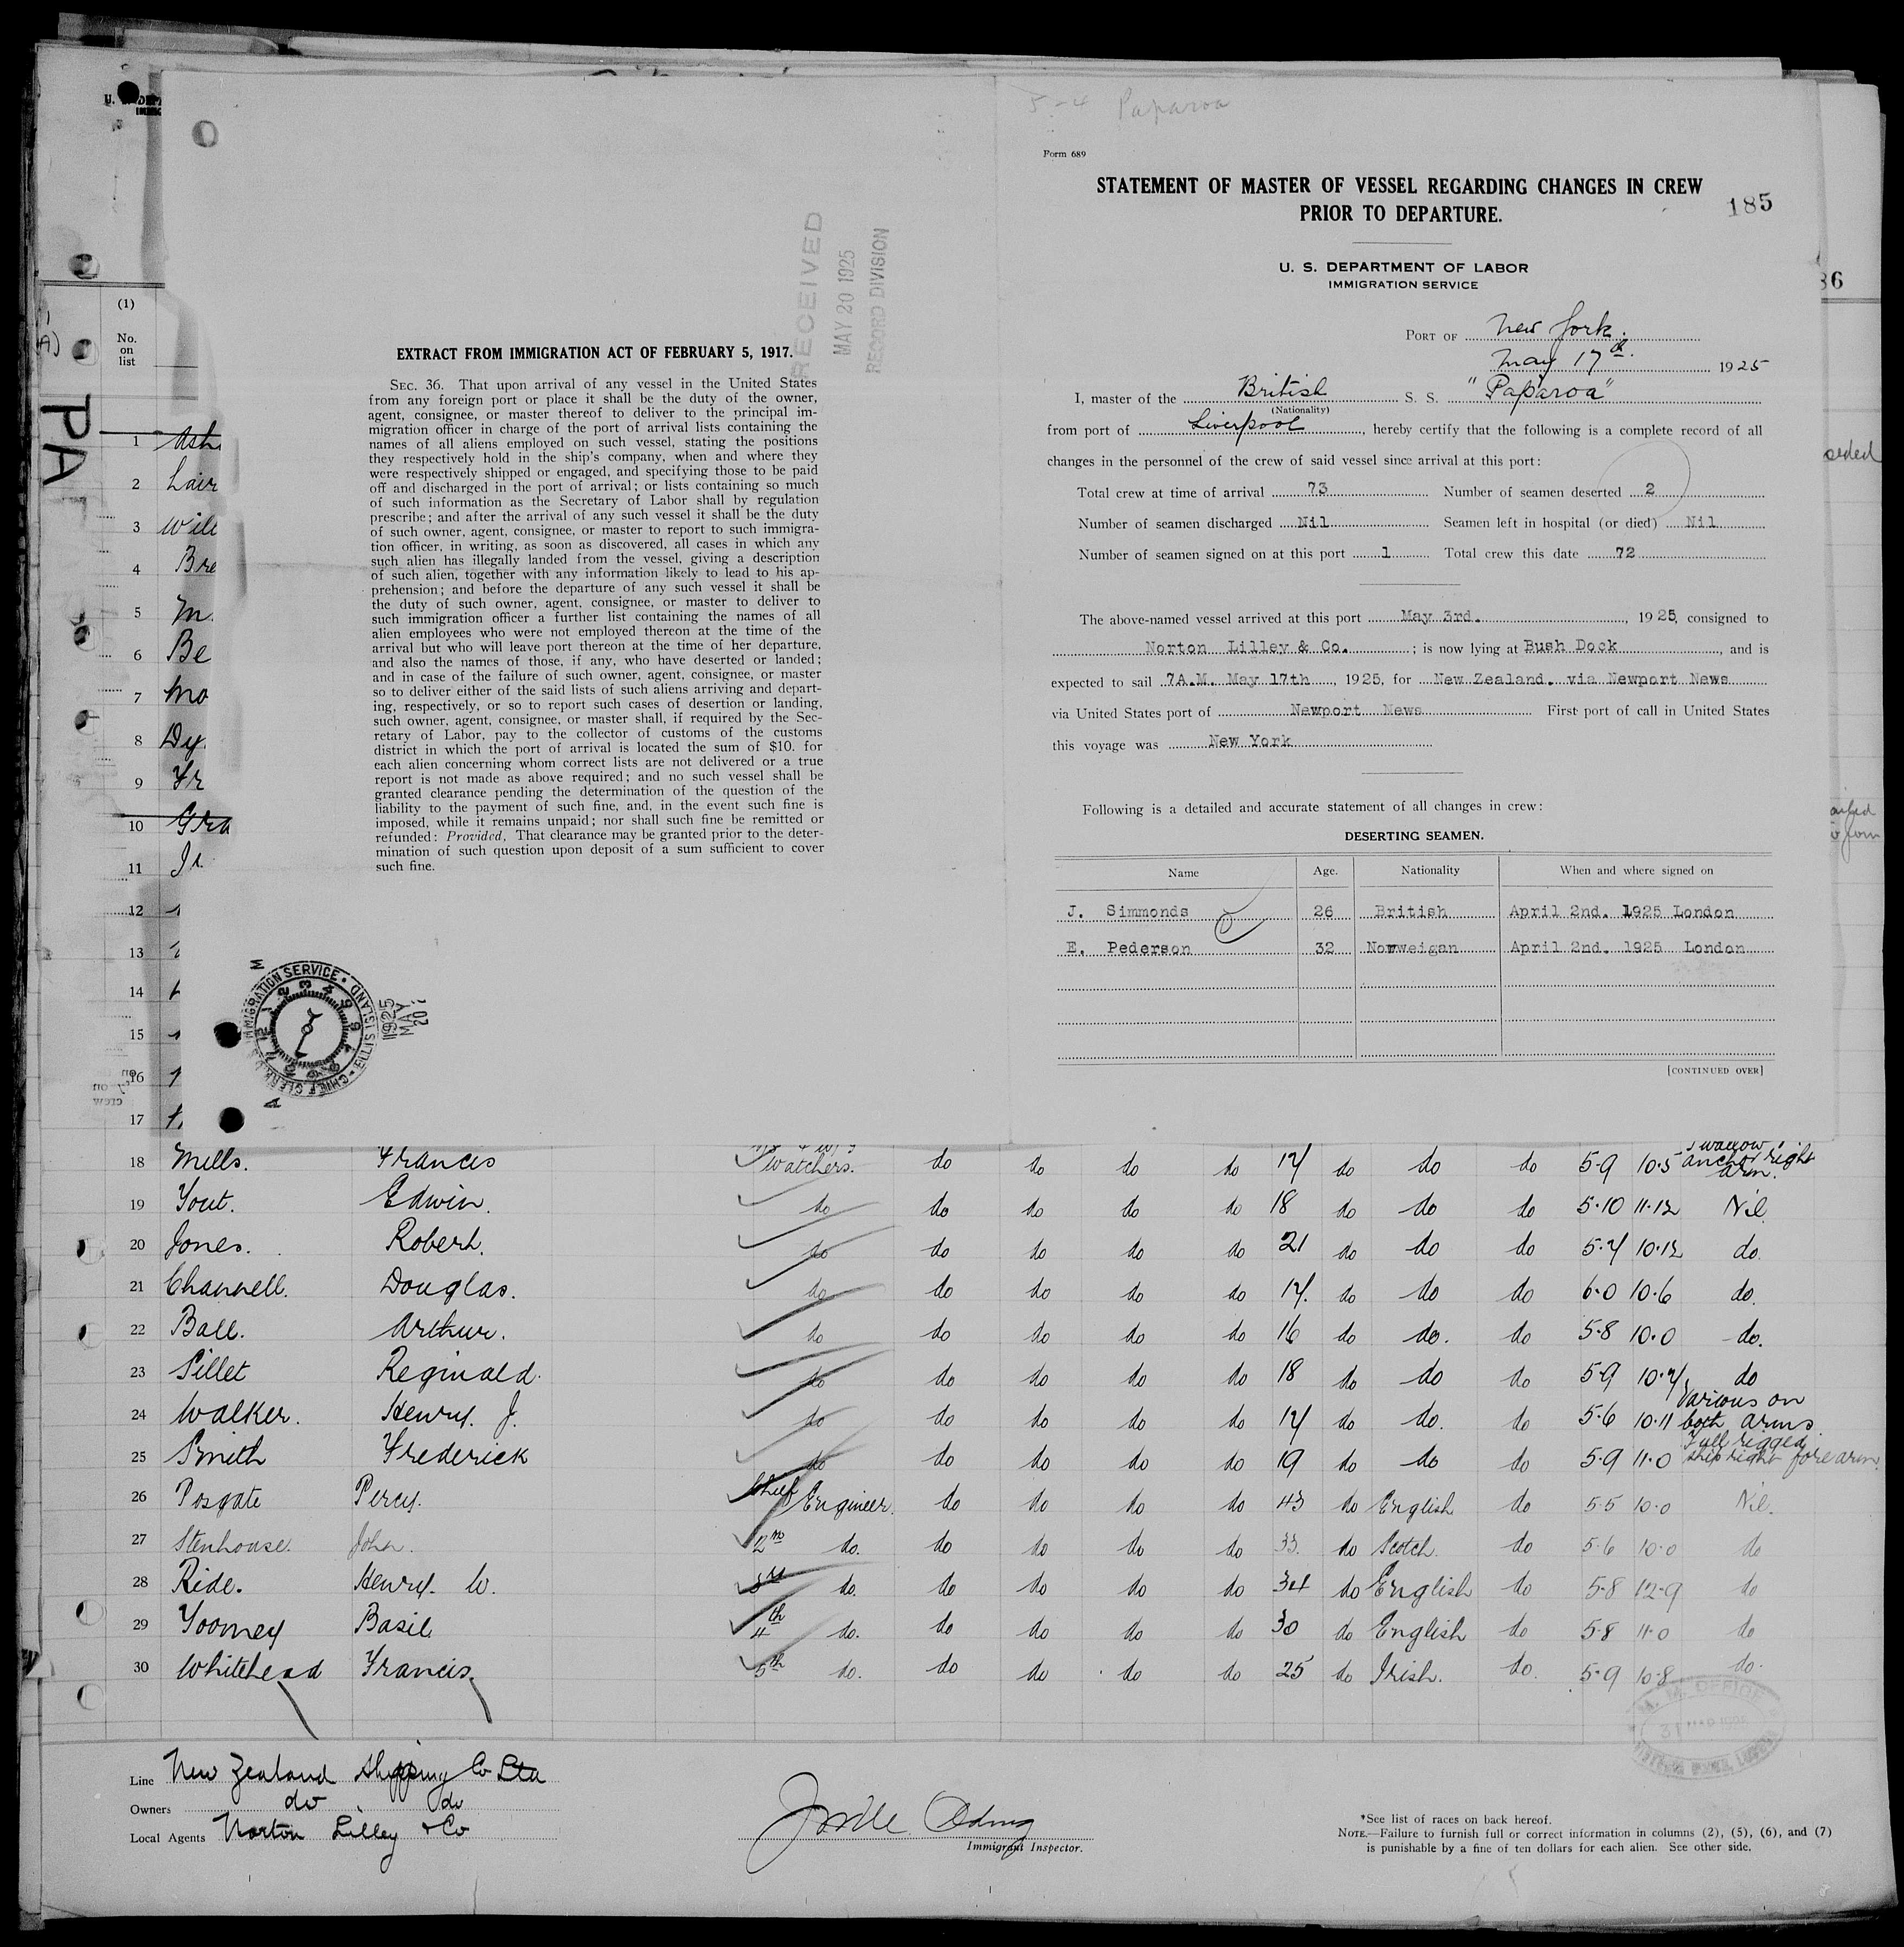 5-4 Paparoa
Form 689
STATEMENT OF MASTER OF VESSEL REGARDING CHANGES IN CREW
PRIOR TO DEPARTURE.
185
U. S. DEPARTMENT OF LABOR
IMMIGRATION SERVICE
PORT OF New York.
May 17th. 1925
I, master of the British S. S. "Paparoa"
(Nationality)
from port of Liverpool, hereby certify that the following is a complete record of all
changes in the personnel of the crew of said vessel since arrival at this port:
Total crew at time of arrival 73 Number of seamen deserted 2
Number of seamen discharged Nil Seamen left in hospital (or died) Nil
Number of seamen signed on at this port 1 Total crew this date 72
The above-named vessel arrived at this port May 3rd., 1925, consigned to
Norton Lilley & Co. ; is now lying at Bush Dock, and is
expected to sail 7A.M. May 17th, 1925, for New Zealand. via Newport News
via United States port of Newport News First port of call in United States
this voyage was New York
Following is a detailed and accurate statement of all changes in crew:
DESERTING SEAMEN.
Name Age. Nationality When and where signed on
J. Simmonds 26 British April 2nd. 1925 London
E. Pederson 32 Norweigan April 2nd. 1925 London
[CONTINUED OVER]
RECEIVED
MAY 20 1925
RECORD DIVISION
EXTRACT FROM IMMIGRATION ACT OF FEBRUARY 5, 1917.
SEC. 36. That upon arrival of any vessel in the United States
from any foreign port or place it shall be the duty of the owner,
agent, consignee, or master thereof to deliver to the principal im-
migration officer in charge of the port of arrival lists containing the
names of all aliens employed on such vessel, stating the positions
they respectively hold in the ship's company, when and where they
were respectively shipped or engaged, and specifying those to be paid
off and discharged in the port of arrival; or lists containing so much
of such information as the Secretary of Labor shall by regulation
prescribe; and after the arrival of any such vessel it shall be the duty
of such owner, agent, consignee, or master to report to such immigra-
tion officer, in writing, as soon as discovered, all cases in which any
such alien has illegally landed from the vessel, giving a description
of such alien, together with any information likely to lead to his ap-
prehension; and before the departure of any such vessel it shall be
the duty of such owner, agent, consignee, or master to deliver to
such immigration officer a further list containing the names of all
alien employees who were not employed thereon at the time of the
arrival but who will leave port thereon at the time of her departure,
and also the names of those, if any, who have deserted or landed;
and in case of the failure of such owner, agent, consignee, or master
so to deliver either of the said lists of such aliens arriving and depart-
ing, respectively, or so to report such cases of desertion or landing,
such owner, agent, consignee, or master shall, if required by the Sec-
retary of Labor, pay to the collector of customs of the customs
district in which the port of arrival is located the sum of $10. for
each alien concerning whom correct lists are not delivered or a true
report is not made as above required; and no such vessel shall be
granted clearance pending the determination of the question of the
liability to the payment of such fine, and, in the event such fine is
imposed, while it remains unpaid; nor shall such fine be remitted or
refunded: Provided, That clearance may be granted prior to the deter-
mination of such question upon deposit of a sum sufficient to cover
such fine.
IMMIGRATION SERVICE · ELLIS ISLAND · CHIEF CLERK
1925 MAY 20
PA
(1)
No.
on
list
1 Ash
2 Lair
3 Will
4 Bre
5 M
6 Be
7 Mo
8 Dy
9 Fr
10 Gra
11
12
13
14
15
16
17
18 Mills. Francis Watchers. do do do do 17 do do do 5-9 10-5 Swallow, anchor right arm.
19 Yout. Edwin. do do do do do 18 do do do 5-10 11-12 Nil
20 Jones. Robert. do do do do do 21 do do do 5-7 10-12 do.
21 Channell. Douglas. do do do do do 17. do do do 6-0 10-6 do.
22 Ball. Arthur. do do do do do 16 do do. do 5-8 10-0 do.
23 Pillet Reginald. do do do do do 18 do do do 5-9 10-7 do
24 Walker. Henry. J. do do do do do 17 do do. do 5-6 10-11 Various on both arms
25 Smith Frederick do do do do do 19 do do do 5-9 11-0 Full rigged ship right forearm.
26 Posgate Percy. Chief Engineer. do do do do 43 do English do 5-5 10-0 Nil.
27 Stenhouse. John. 2nd do. do do do do 33. do Scotch. do 5-6 10-0 do
28 Ride. Henry. W. 3rd do. do do do do 34 do English do 5-8 12-9 do
29 Toomey Basil 4th do. do do do do 30 do English do 5-8 11-0 do
30 Whitehead Francis 5th do. do do do do 25 do Irish. do. 5-9 10-8 do.
Line New Zealand Shipping Co Ltd
Owners do do
Local Agents Norton Lilley & Co
Immigrant Inspector.
*See list of races on back hereof.
NOTE.—Failure to furnish full or correct information in columns (2), (5), (6), and (7)
is punishable by a fine of ten dollars for each alien. See other side.